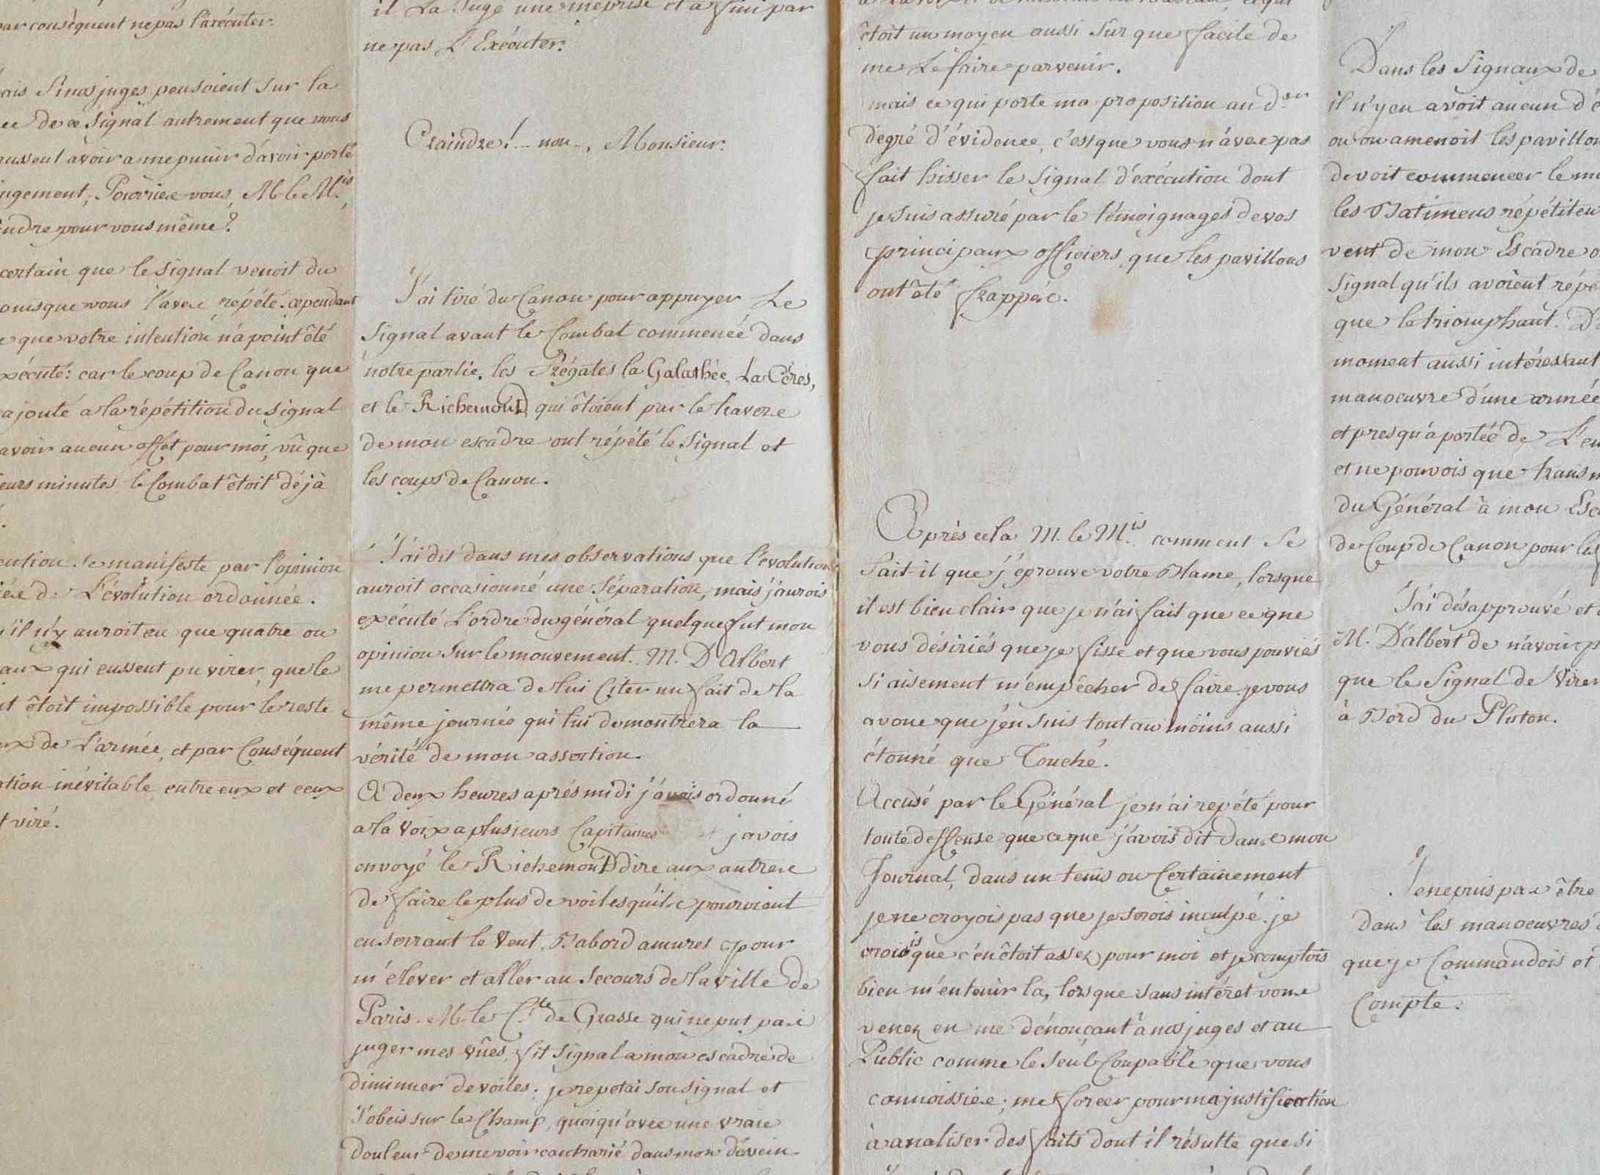 par conséquent ne pas l'exécuter.
mais si nos juges pensoient sur la
de ce signal autrement que vous
avoir a me punir d'avoir porté
jugement, Pouviés vous, M. le M.is
pour vous même?
certain que le signal venoit du
puisque vous l'avés répété. cependant
que votre intention n'a point été
exécuté: car le coup de Canon que
ajouté a la répétition du signal
avoir aucun effet pour moi, vû que
minutes le Combat étoit déjà
se manifeste par l'opinion
de L'évolution ordonnée.
il n'y auroit eu que quatre ou
qui eussent pu virer, que le
étoit impossible pour le reste
de L'armée, et par Conséquent
inévitable entre eux et ceux
viré.
il La Jugé une méprise et a fini par
ne pas L'Exécuter.
Craindre! .. non .., Monsieur.
J'ai tiré du Canon pour appuyer Le
signal avant le Combat commencé dans
nôtre partie. les Frégates la Galathée, La Cérès,
et le Richemond qui étoient par le travers
de mon escadre ont répété le signal et
les coups de Canon.
J'ai dit dans mes observations que l'évolution
auroit occasionné une séparation, mais j'aurois
exécuté L'ordre du général quelque fut mon
opinion sur le mouvement. M. D'Albert
me permettra de lui Citer un fait de la
même journée qui lui demontrera la
vérité de mon assertion.
A deux heures après midi j'avois ordonné
a la voix a plusieurs Capitaines et j'avois
envoyé le Richemond dire aux autres
de faire le plus de voiles qu'ils pourroient
en serrant le Vent, Babord amures pour
m'élever et aller au secours de la ville de
Paris. M. le C.te de Grasse qui ne put pas
juger mes vûes, fit signal a mon escadre de
diminuer de voiles. je repetai son signal et
J'obeis sur le Champ, quoiqu'avec une vraie
douleur de me voir contrarié dans mon dessein
étoit un moyen aussi sur que facile de
me Le faire parvenir.
mais ce qui porte ma proposition au d.er
dégré d'évidence, c'est que vous n'avés pas
fait hisser le signal d'exécution dont
je suis assuré par le témoignages de vos
principaux officiers, que les pavillons
ont été frappés.
Après cela M. le M.is comment se
fait-il que j'éprouve votre Blame, lorsque
il est bien clair que je n'ai fait que ce que
vous désiriés que je fisse et que vous pouviés
si aisement m'empêcher de faire. je vous
avoue que j'en suis tout au moins aussi
étonné que Touché.
Accusé par le Général je n'ai repété pour
toute deffense que ce que j'avois dit dans mon
Journal, dans un tems ou Certainement
je ne croyois pas que je serois inculpé. je
croiois que c'en étoit assez pour moi et je comptois
bien m'en tenir la, lorsque sans intéret vous
venez en me dénonçant à nos juges et au
Public comme le seul Coupable que vous
connoissiés, me forcer pour ma justification
à analiser des faits dont il résulte que si
Dans les Signaux de
il n'y en avoit aucun
ou on amenoit les pavillons
devoit commencer le
les Batimens répétiteurs
vent de mon Escadre
signal qu'ils avoient répété
que le triomphant.
moment aussi intéressant
manoeuvre d'une armée
et presqu'a portée de
et ne pouvois que
du Général à mon
de Coup de Canon pour les
J'ai désapprouvé et
M. D'albert de n'avoir
que le Signal de Virer
à Bord du Pluton.
Je ne puis pas être
dans les manoeuvres
que je Commandois et
Compte.